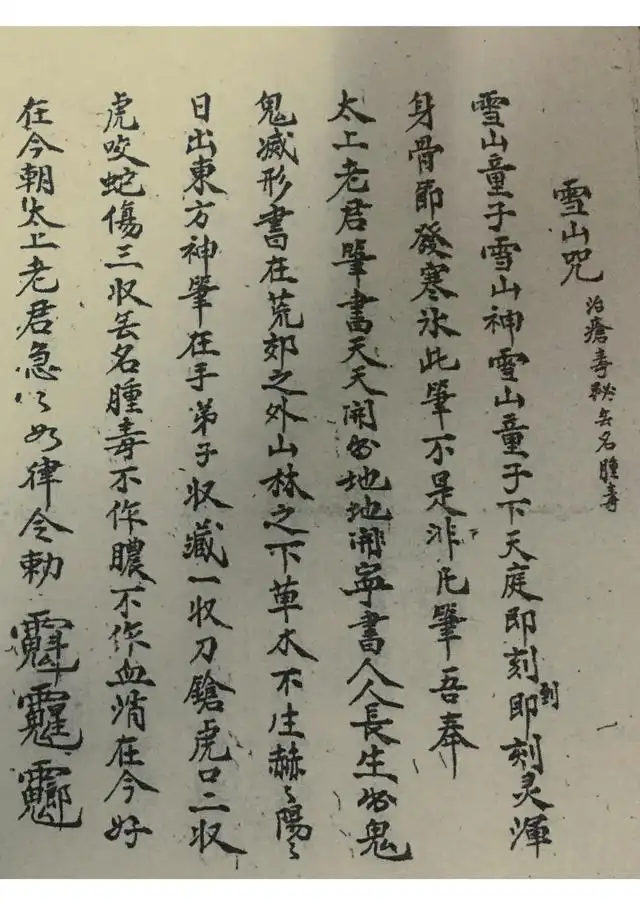 雪山咒 治瘡毒秘無名腫毒
雪山童子雪山神雪山童子下天庭即刻到即刻灵渾
身骨節發寒氷此筆不是非凡筆吾奉
太上老君筆書天天開书地地開寧書人人長生书鬼
鬼滅形書在荒郊之外山林之下草木不生赫〻陽〻
日出東方神筆在手弟子収藏一収刀鎗虎口二収
虎咬蛇傷三収無名腫毒不作膿不作血消在今好
在今朝太上老君急〻如律令勅